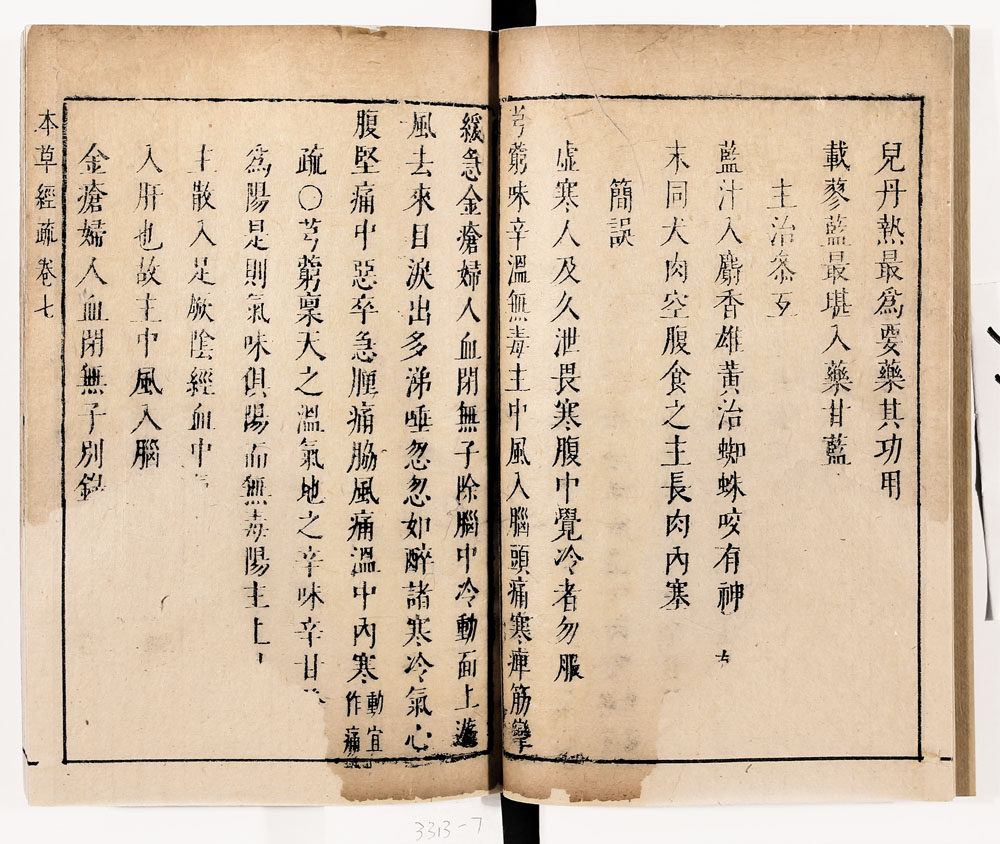 兒丹熱最為要藥其功用
載蓼藍最堪入藥甘藍
主治叅互
藍汁入麝香雄黃治蜘蛛咬有神
末同犬肉空腹食之主長肉內塞
簡誤
虛寒人及久泄畏寒腹中覺冷者勿服
芎藭味辛溫無毒主中風入腦頭痛寒痺筋攣
緩急金瘡婦人血閉無子除腦中冷動面上遊
風去來目淚出多涕唾忽忽如醉諸寒冷氣心
腹堅痛中惡卒急腫痛脇風痛溫中內寒動宜作痛
疏〇芎藭稟天之溫氣地之辛味辛甘
為陽是則氣味俱陽而無毒陽主上
主散入足厥陰經血中
入肝也故主中風入腦
金瘡婦人血閉無子別錄
本草經疏 卷七
3313-7